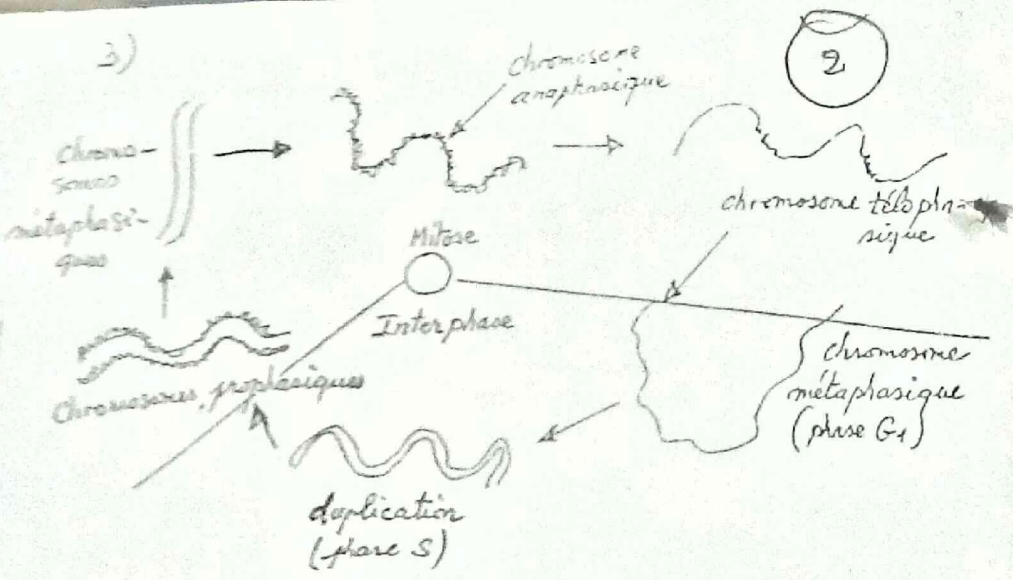 3)
2
chromosome
anaphasique
chromo-
somes
métaphasi-
ques
chromosome télopha-
sique
Mitose
Interphase
chromosomes prophasiques
chromosome
métaphasique
(phase G1)
duplication
(phase S)